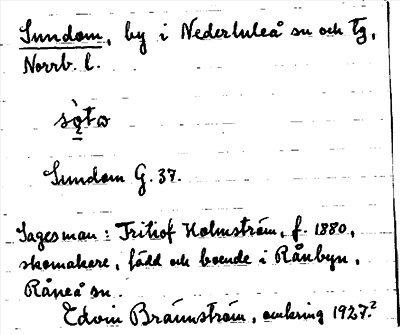 Sundom, by i Nederluleå sn och tg,
Norrb. l.
Sundom G. 37.
Sagesman: Fritiof Holmström, f. 1880,
skomakare, född och boende i Rånbyn,
Råneå sn.
Edvin Brännström, omkring 1927.²